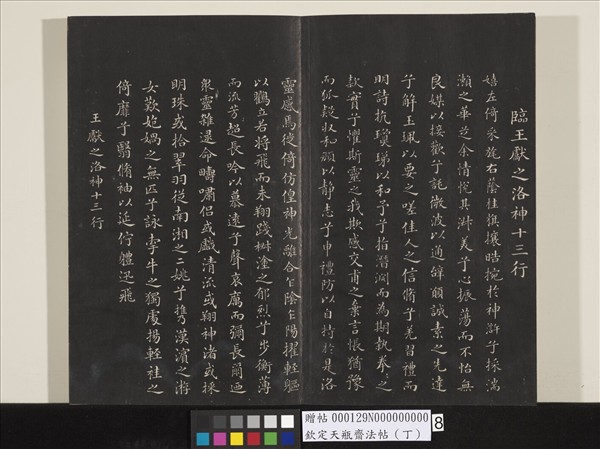 臨王獻之洛神十三行
嬉左倚采旄右蔭桂旗攘晧捥於神滸兮採湍
瀨之玄芝余情悅其淋美兮心振蕩而不怡無
良媒以接歡兮託微波以通辝願誠素之先達
兮解玉珮以要之嗟佳人之信脩兮羌習禮而
明詩抗瓊珶以和予兮指潛淵而為期執拳拳之
款實兮懼斯靈之我欺感交甫之棄言悵猶豫
而狐疑收和顏以靜志兮申禮防以自持於是洛
靈感焉徙倚仿偟神光離合乍陰乍陽擢輕軀
以鶴立若將飛而未翔踐椒塗之郁烈兮步衡薄
而流芳超長吟以慕遠兮聲哀厲而彌長爾迺
眾靈雜遝命疇嘯侶或戲清流或翔神渚或採
明珠或拾翠羽從南湘之二姚兮攜漢濱之游
女歎匏媧之無匹兮詠牽牛之獨處揚輕袿之
倚靡兮翳脩袖以延佇體迅飛
王獻之洛神十三行
贈帖 000129N000000000
欽定天瓶齋法帖（丁）
8